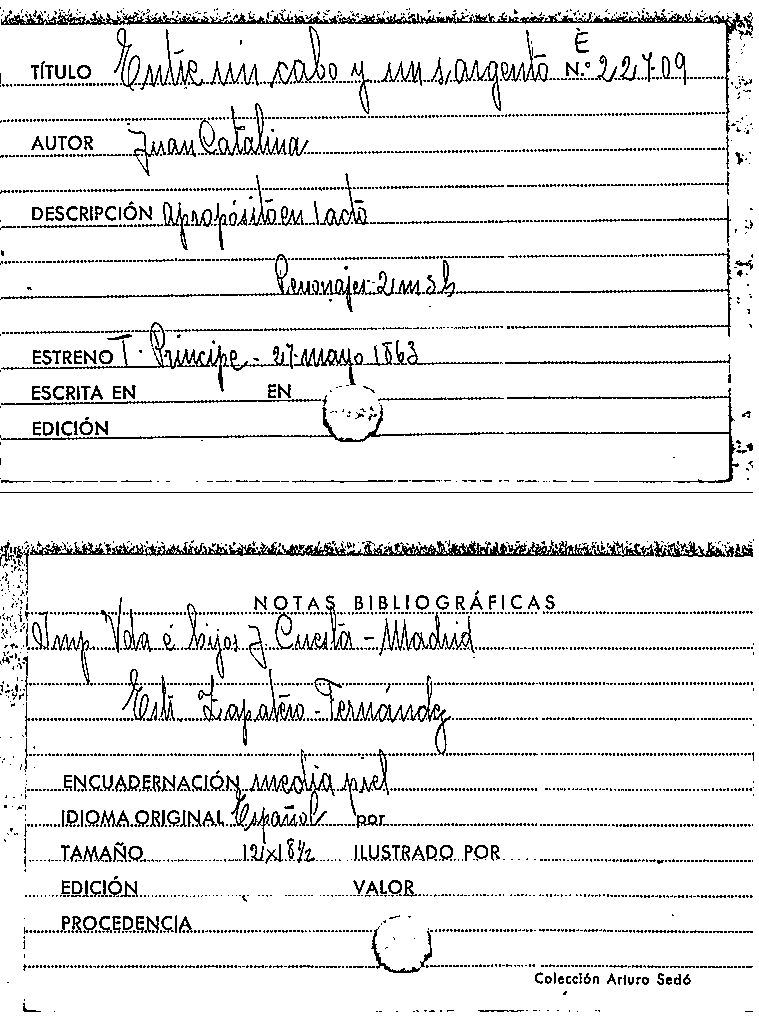 E
TÍTULO Entre un cabo y un sargento N.º 22709
AUTOR Juan Catalina
DESCRIPCIÓN apropósito en 1 acto
Personajes 2 m 5 h
ESTRENO T. Príncipe - 27 mayo 1863
ESCRITA EN EN
EDICIÓN
NOTAS BIBLIOGRÁFICAS
Imp Vda é hijos J Cuesta - Madrid
Zapatero - Fernández
ENCUADERNACIÓN media piel
IDIOMA ORIGINAL Español por
TAMAÑO ILUSTRADO POR
EDICIÓN VALOR
PROCEDENCIA
Colección Arturo Sedó